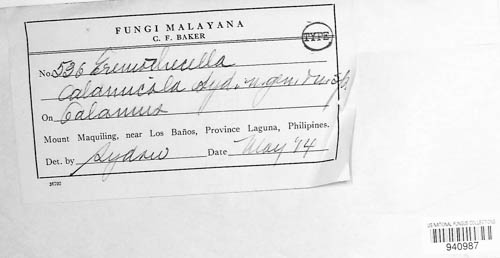 FUNGI MALAYANA
C. F. BAKER
TYPE
No. 536 Eremothecella
calamicola Syd. n. gen. et sp.
On Calamus
Mount Maquiling, near Los Baños, Province Laguna, Philipines.
Det. by Sydow Date May '14
26702
US NATIONAL FUNGUS COLLECTIONS
940987